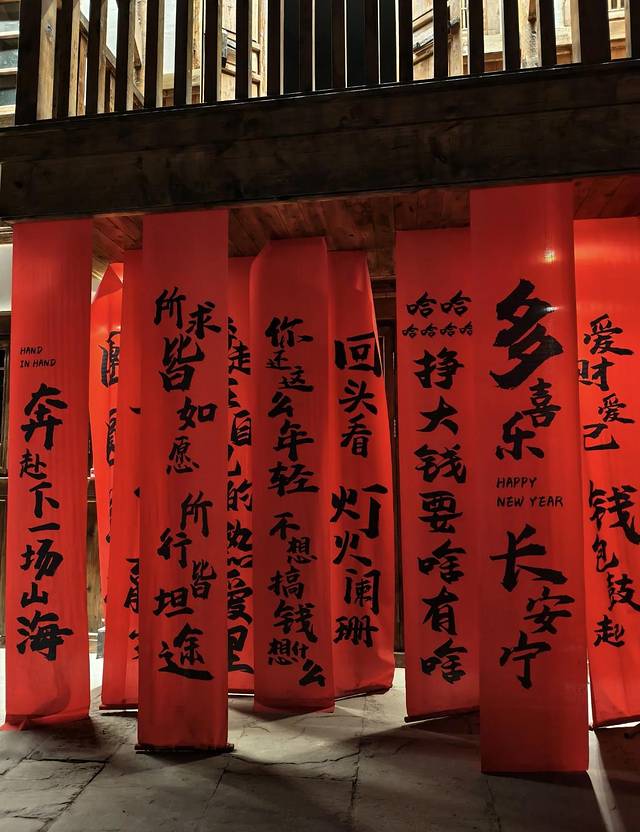 HAND
IN HAND
奔赴下一场山海
所求皆如愿
所行皆坦途
自己的热爱里
你还这么年轻
不想搞钱想什么
回头看
灯火阑珊
哈哈
哈哈哈哈
挣大钱要啥有啥
多喜乐
HAPPY
NEW YEAR
长安宁
爱财爱己
钱包鼓起